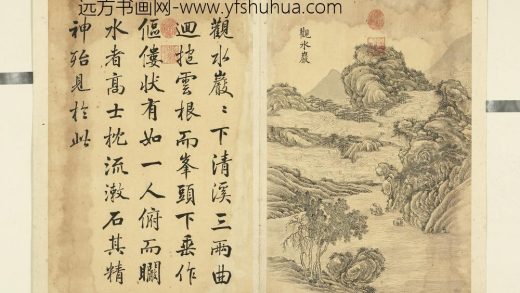 远方书画网-www.yfshuhua.com
觀水巖
觀水巖巖下清溪三兩曲
迴抱雲根而峯頭下垂作
傴僂狀有如一人俯而瞷
水者高士枕流漱石其精
神殆見於此